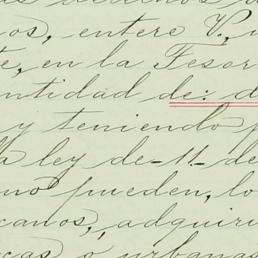 os, entere V.,
te, en la Tesor
ntidad de: d
y teniendo p
a ley de 11 de
mo pueden, lo
canos, adquiri
cas ó urbanas